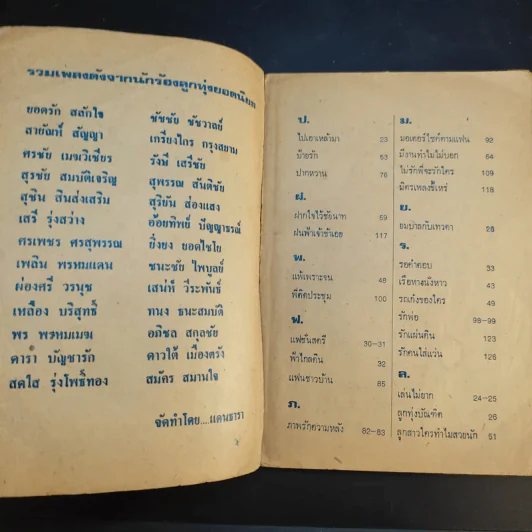 รวมเพลงดังจากนักร้องลูกทุ่งยอดนิยม
ยอดรัก สลักใจ
สายัณห์ สัญญา
ศรชัย เมฆวิเชียร
สุรชัย สมบัติเจริญ
สุชิน สินส่งเสริม
เสรี รุ่งสว่าง
ศรเพชร ศรสุพรรณ
เพลิน พรหมแดน
ผ่องศรี วรนุช
เหลือง บริสุทธิ์
พร พรหมเมฆ
ดารา บัญชารัก
สดใส รุ่งโพธิ์ทอง
ชัชชัย ชัชวาลย์
เกรียงไกร กรุงสยาม
รังษี เสรีชัย
สุพรรณ สันติชัย
สุริยัน ส่องแสง
อ้อยทิพย์ บัญญาธรณ์
ยิ่งยง ยอดไชโย
ชนะชัย ไพบูลย์
เสน่ห์ วีระพันธ์
ทนง ธนะสมบัติ
อภิชล สกุลชัย
ดาวใต้ เมืองตรัง
สมัคร สมานใจ
จัดทำโดย....แดนธารา
ป.
ไปเอาเหล้ามา 23
บ้ายรัก 53
ปากหวาน 76
ฝ.
ฝากใจไว้ชัยนาท 59
ฝนฟ้าเจ้าข้าเอย 117
พ.
แพ้เพราะจน 48
พี่ติดประชุม 100
ฟ.
แฟชั่นสตรี 30-31
ฟ้าไกลดิน 32
แฟนชาวบ้าน 85
ภ.
ภาพรักความหลัง 82-83
ม.
มอเตอร์ไซค์ตามแฟน 92
มีงานทำไมไม่บอก 64
ไม่รักพี่จะรักใคร 109
มิตรเพลงขี้เหร่ 118
ย.
ยมบาลกับเทวดา 28
ร.
รอคำตอบ 33
เรือหางนังหาว 43
รถเก๋งของใคร 49
รักพ่อ 98-99
รักแผ่นดิน 123
รักคนใส่แว่น 126
ล.
เล่นไม่ยาก 24-25
ลูกทุ่งบัณฑิต 26
ลูกสาวใครทำไมสวยนัก 51